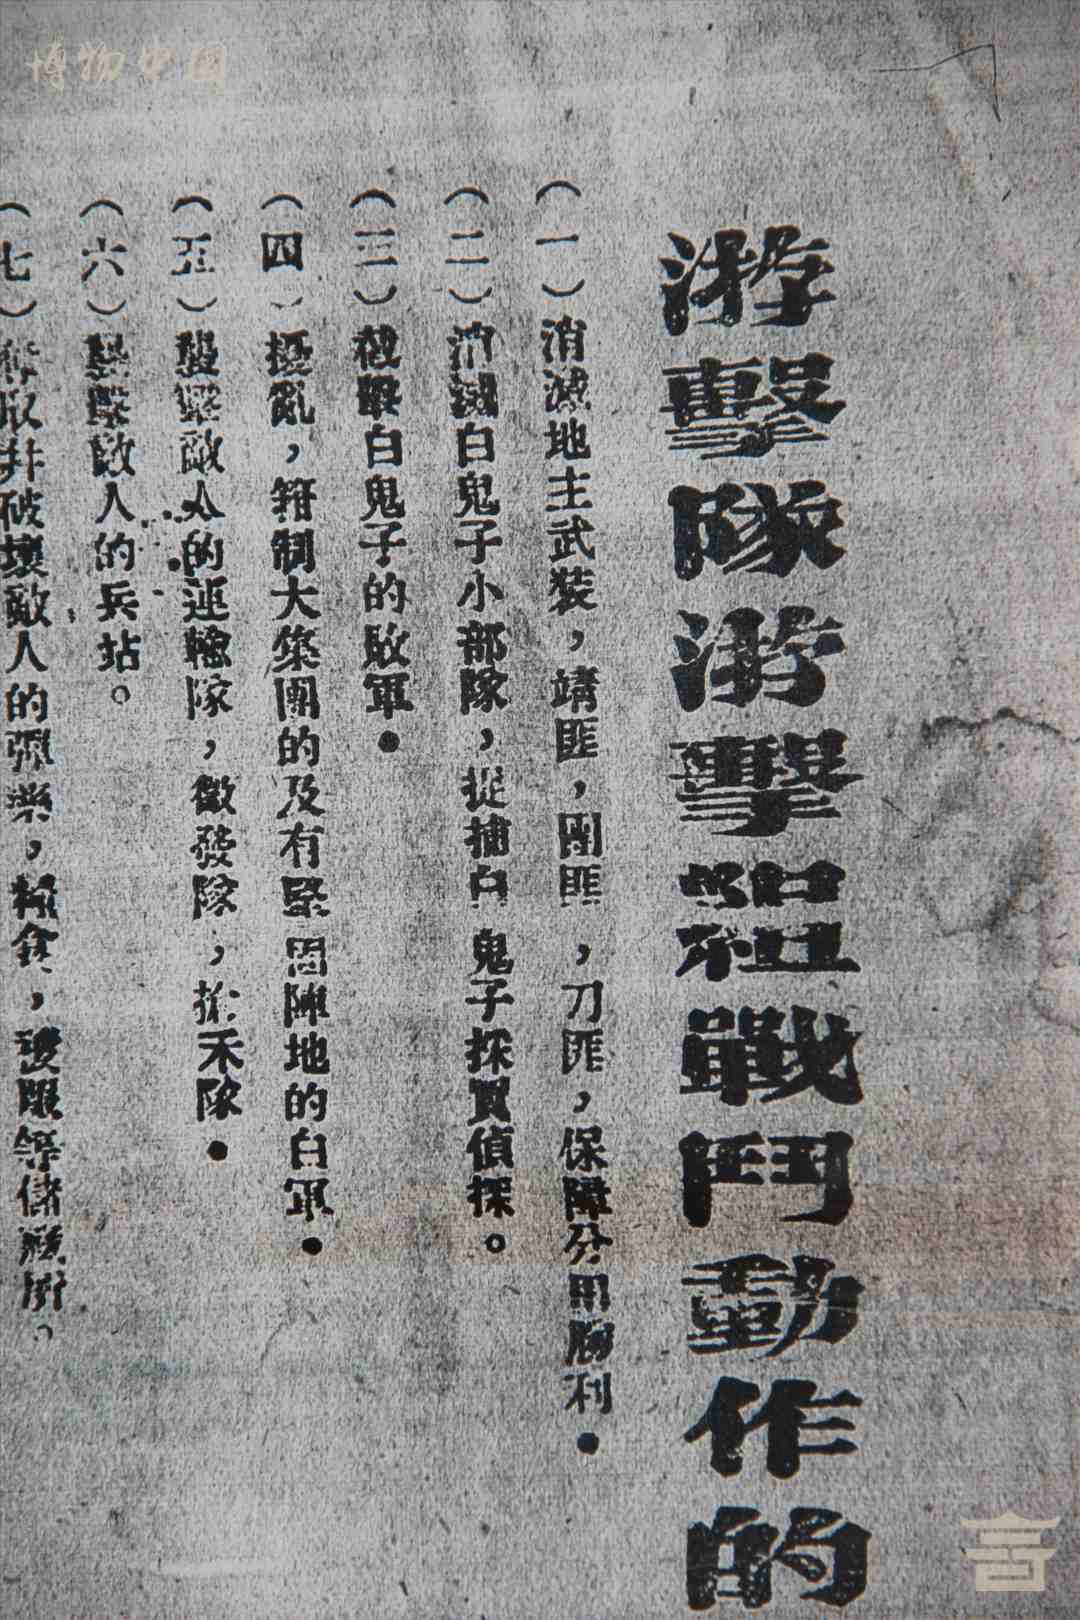 博物中国
游擊隊游擊組戰鬥動作的
(一)消滅地主武裝，靖匪，團匪，刀匪，保障分田勝利．
(二)消滅白鬼子小部隊，捉捕白鬼子採買偵探。
(三)截擊白鬼子的敗軍．
(四)擾亂，箝制大集團的及有坚固陣地的白軍．
(五)襲擊敵人的運輸隊，徵發隊，搶禾隊．
(六)襲擊敵人的兵站。
(七)奪取并破壞敵人的彈藥，糧食，被服等儲藏所。